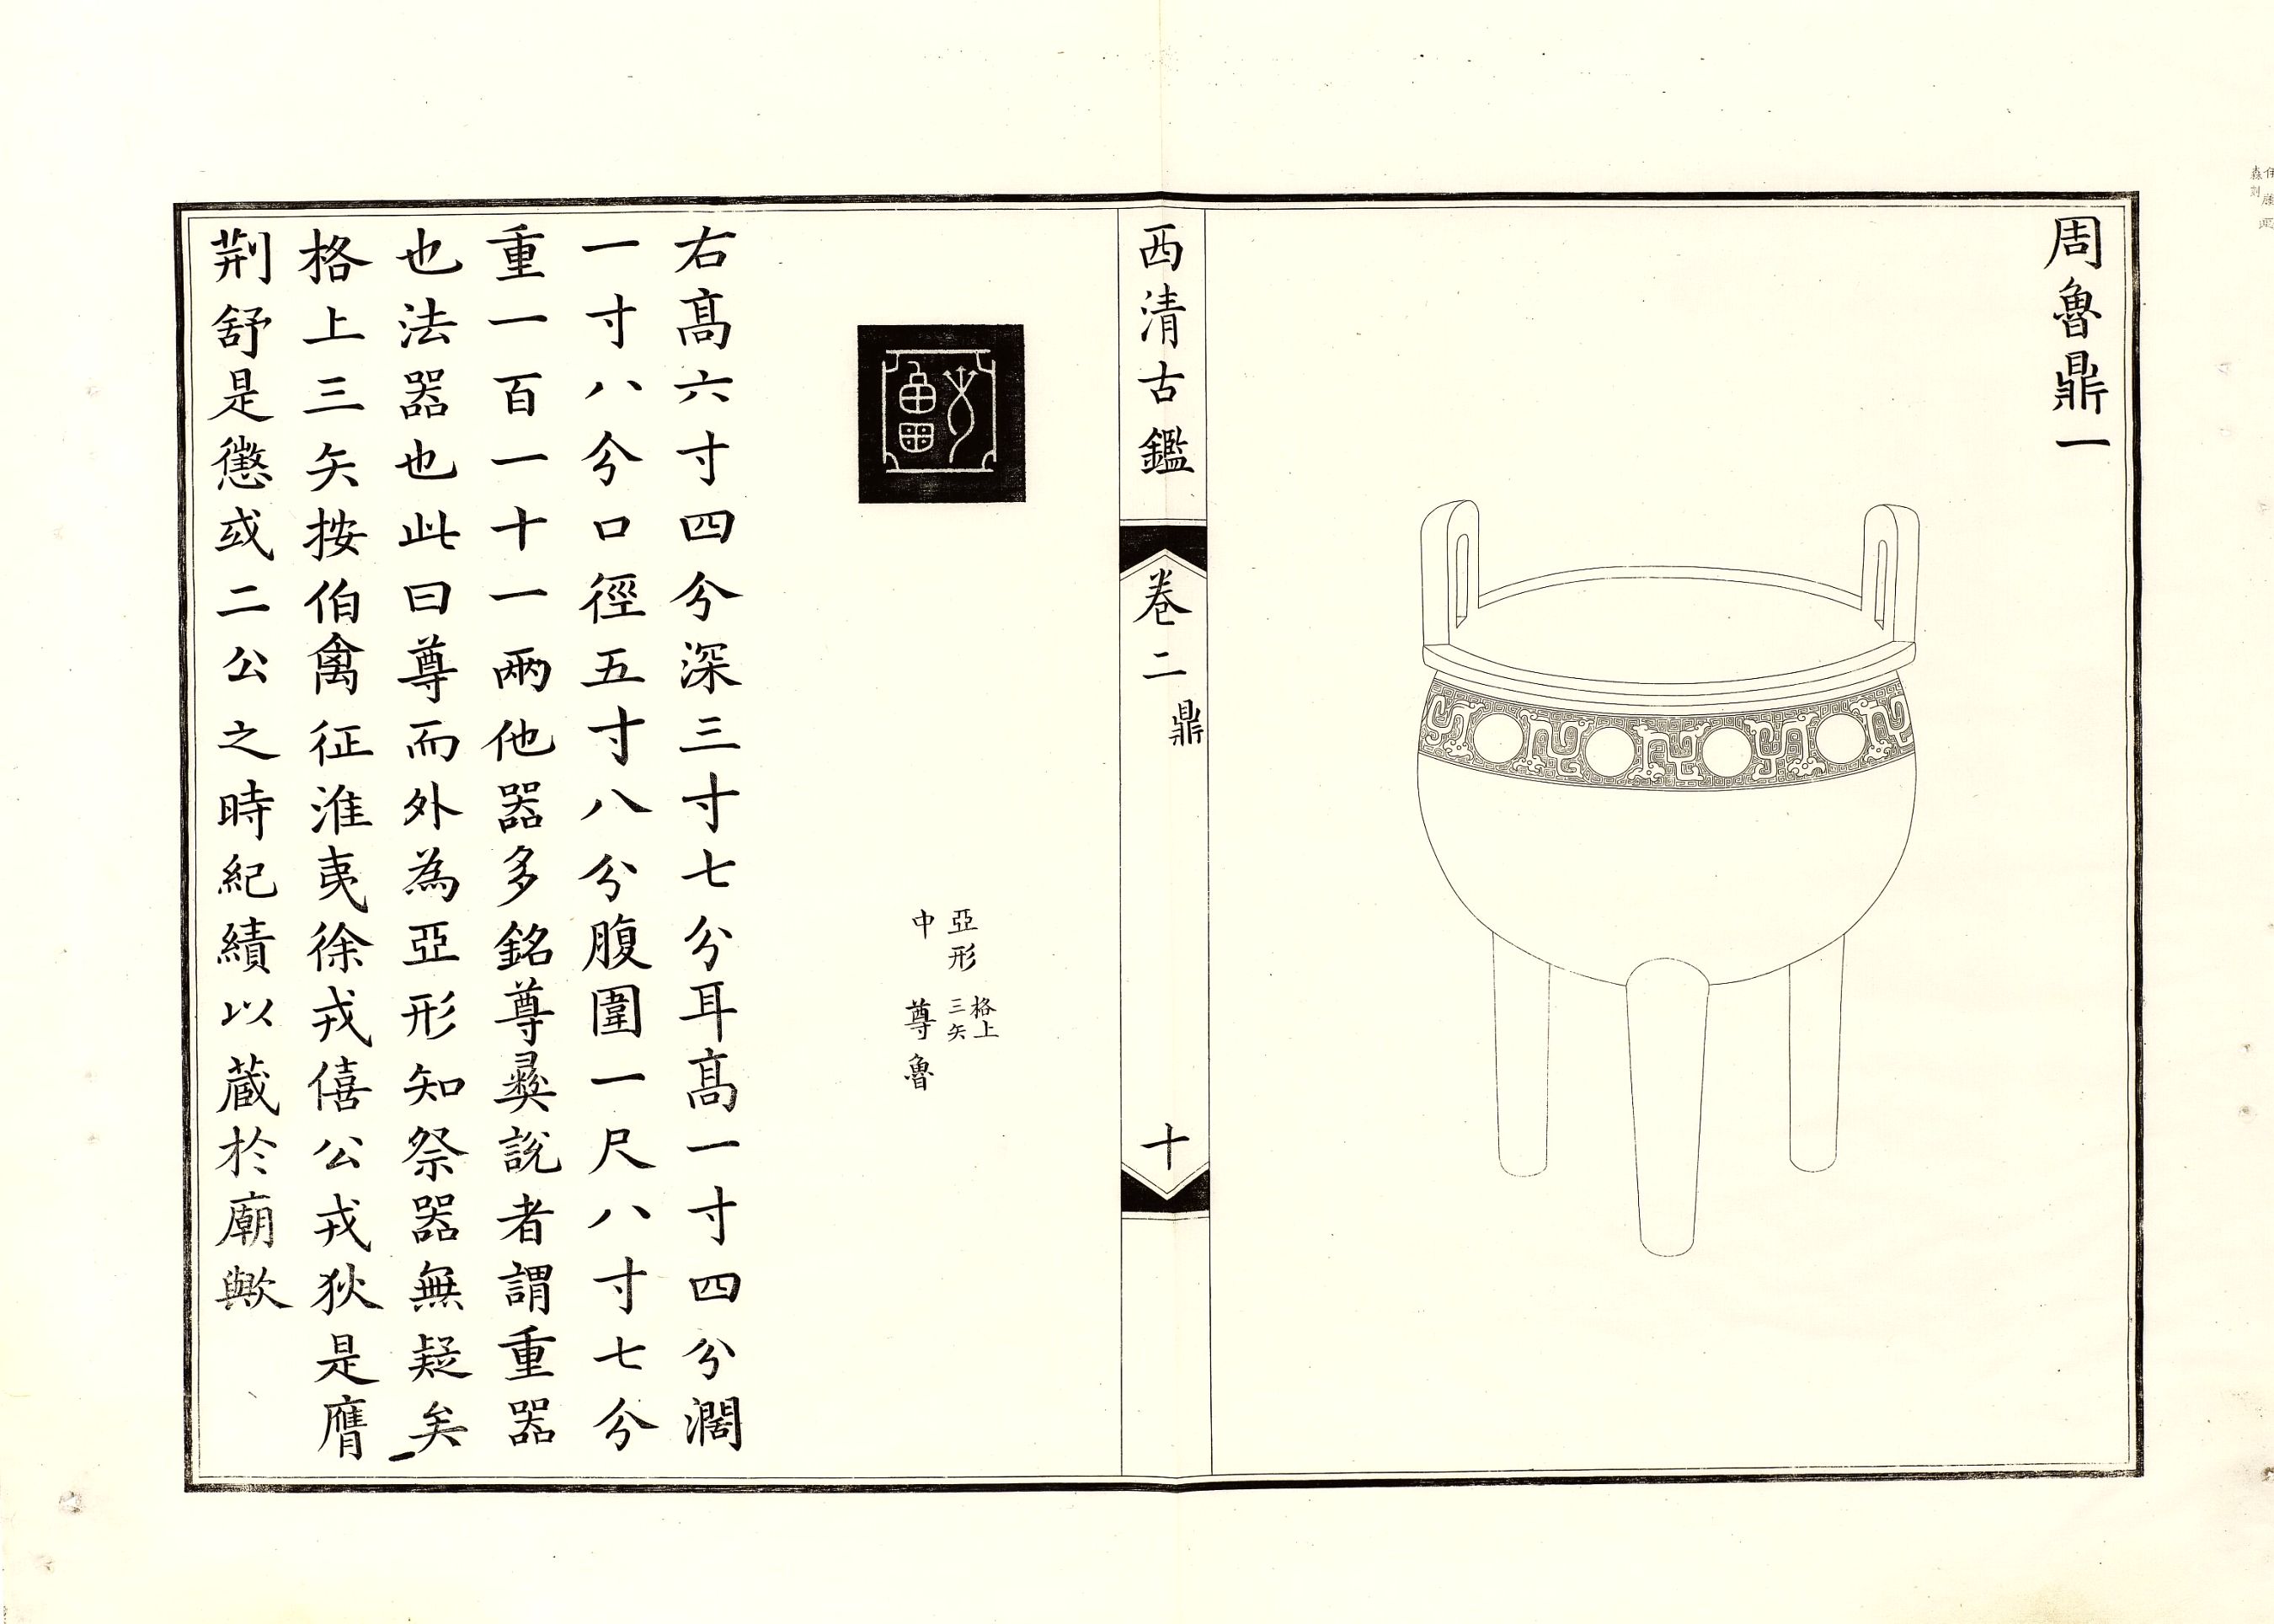 周魯鼎一
西清古鑑
卷二
鼎
十
亞形
格上
三矢
中
尊魯
右高六寸四分深三寸七分耳高一寸四分濶
一寸八分口徑五寸八分腹圍一尺八寸七分
重一百一十一兩他器多銘尊彝說者謂重器
也法器也此曰尊而外為亞形知祭器無疑矣
格上三矢按伯禽征淮夷徐戎僖公戎狄是膺
荆舒是懲或二公之時紀績以蔵於廟歟